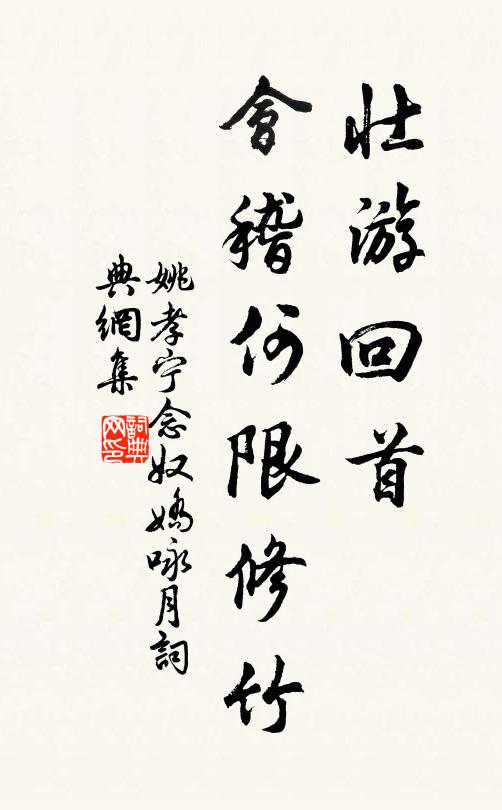 壮游回首
會稽何限修竹
姚孝宁念奴嬌咏月詞
典網集
詞典
网印